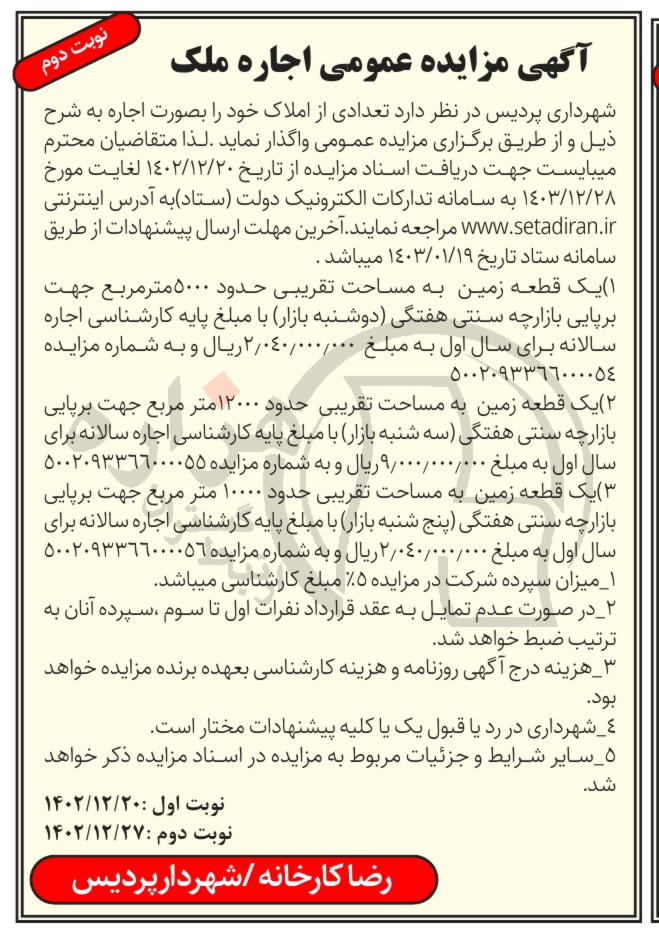 نوبت دوم
آگهی مزایده عمومی اجاره ملک
شهرداری پردیس در نظر دارد تعدادی از املاک خود را بصورت اجاره به شرح
ذیل و از طریق برگزاری مزایده عمومی واگذار نماید .لذا متقاضیان محترم
میبایست جهت دریافت اسناد مزایده از تاریخ ۱۴۰۲/۱۲/۲۰ لغایت مورخ
۱۴۰۳/۱۲/۲۸ به سامانه تدارکات الکترونیک دولت (ستاد)به آدرس اینترنتی
www.setadiran.ir مراجعه نمایند.آخرین مهلت ارسال پیشنهادات از طریق
سامانه ستاد تاریخ ۱۴۰۳/۰۱/۱۹ میباشد .
۱)یک قطعه زمین به مساحت تقریبی حدود ۵۰۰۰مترمربع جهت
برپایی بازارچه سنتی هفتگی (دوشنبه بازار) با مبلغ پایه کارشناسی اجاره
سالانه برای سال اول به مبلغ ۲٫۰۴۰٫۰۰۰٫۰۰۰ریال و به شماره مزایده
۵۰۰۲۰۹۳۳۶۶۰۰۰۰۵۴
۲)یک قطعه زمین به مساحت تقریبی حدود ۱۲۰۰۰متر مربع جهت برپایی
بازارچه سنتی هفتگی (سه شنبه بازار) با مبلغ پایه کارشناسی اجاره سالانه برای
سال اول به مبلغ ۹٫۰۰۰٫۰۰۰٫۰۰۰ریال و به شماره مزایده ۵۰۰۲۰۹۳۳۶۶۰۰۰۰۵۵
۳)یک قطعه زمین به مساحت تقریبی حدود ۱۰۰۰۰ متر مربع جهت برپایی
بازارچه سنتی هفتگی (پنج شنبه بازار) با مبلغ پایه کارشناسی اجاره سالانه برای
سال اول به مبلغ ۲٫۰۴۰٫۰۰۰٫۰۰۰ریال و به شماره مزایده ۵۰۰۲۰۹۳۳۶۶۰۰۰۰۵۶
۱_میزان سپرده شرکت در مزایده ۵٪ مبلغ کارشناسی میباشد.
۲_در صورت عدم تمایل به عقد قرارداد نفرات اول تا سوم ،سپرده آنان به
ترتیب ضبط خواهد شد.
۳_هزینه درج آگهی روزنامه و هزینه کارشناسی بعهده برنده مزایده خواهد
بود.
۴_شهرداری در رد یا قبول یک یا کلیه پیشنهادات مختار است.
۵_سایر شرایط و جزئیات مربوط به مزایده در اسناد مزایده ذکر خواهد
شد.
نوبت اول :۱۴۰۲/۱۲/۲۰
نوبت دوم :۱۴۰۲/۱۲/۲۷
رضا کارخانه /شهردار پردیس